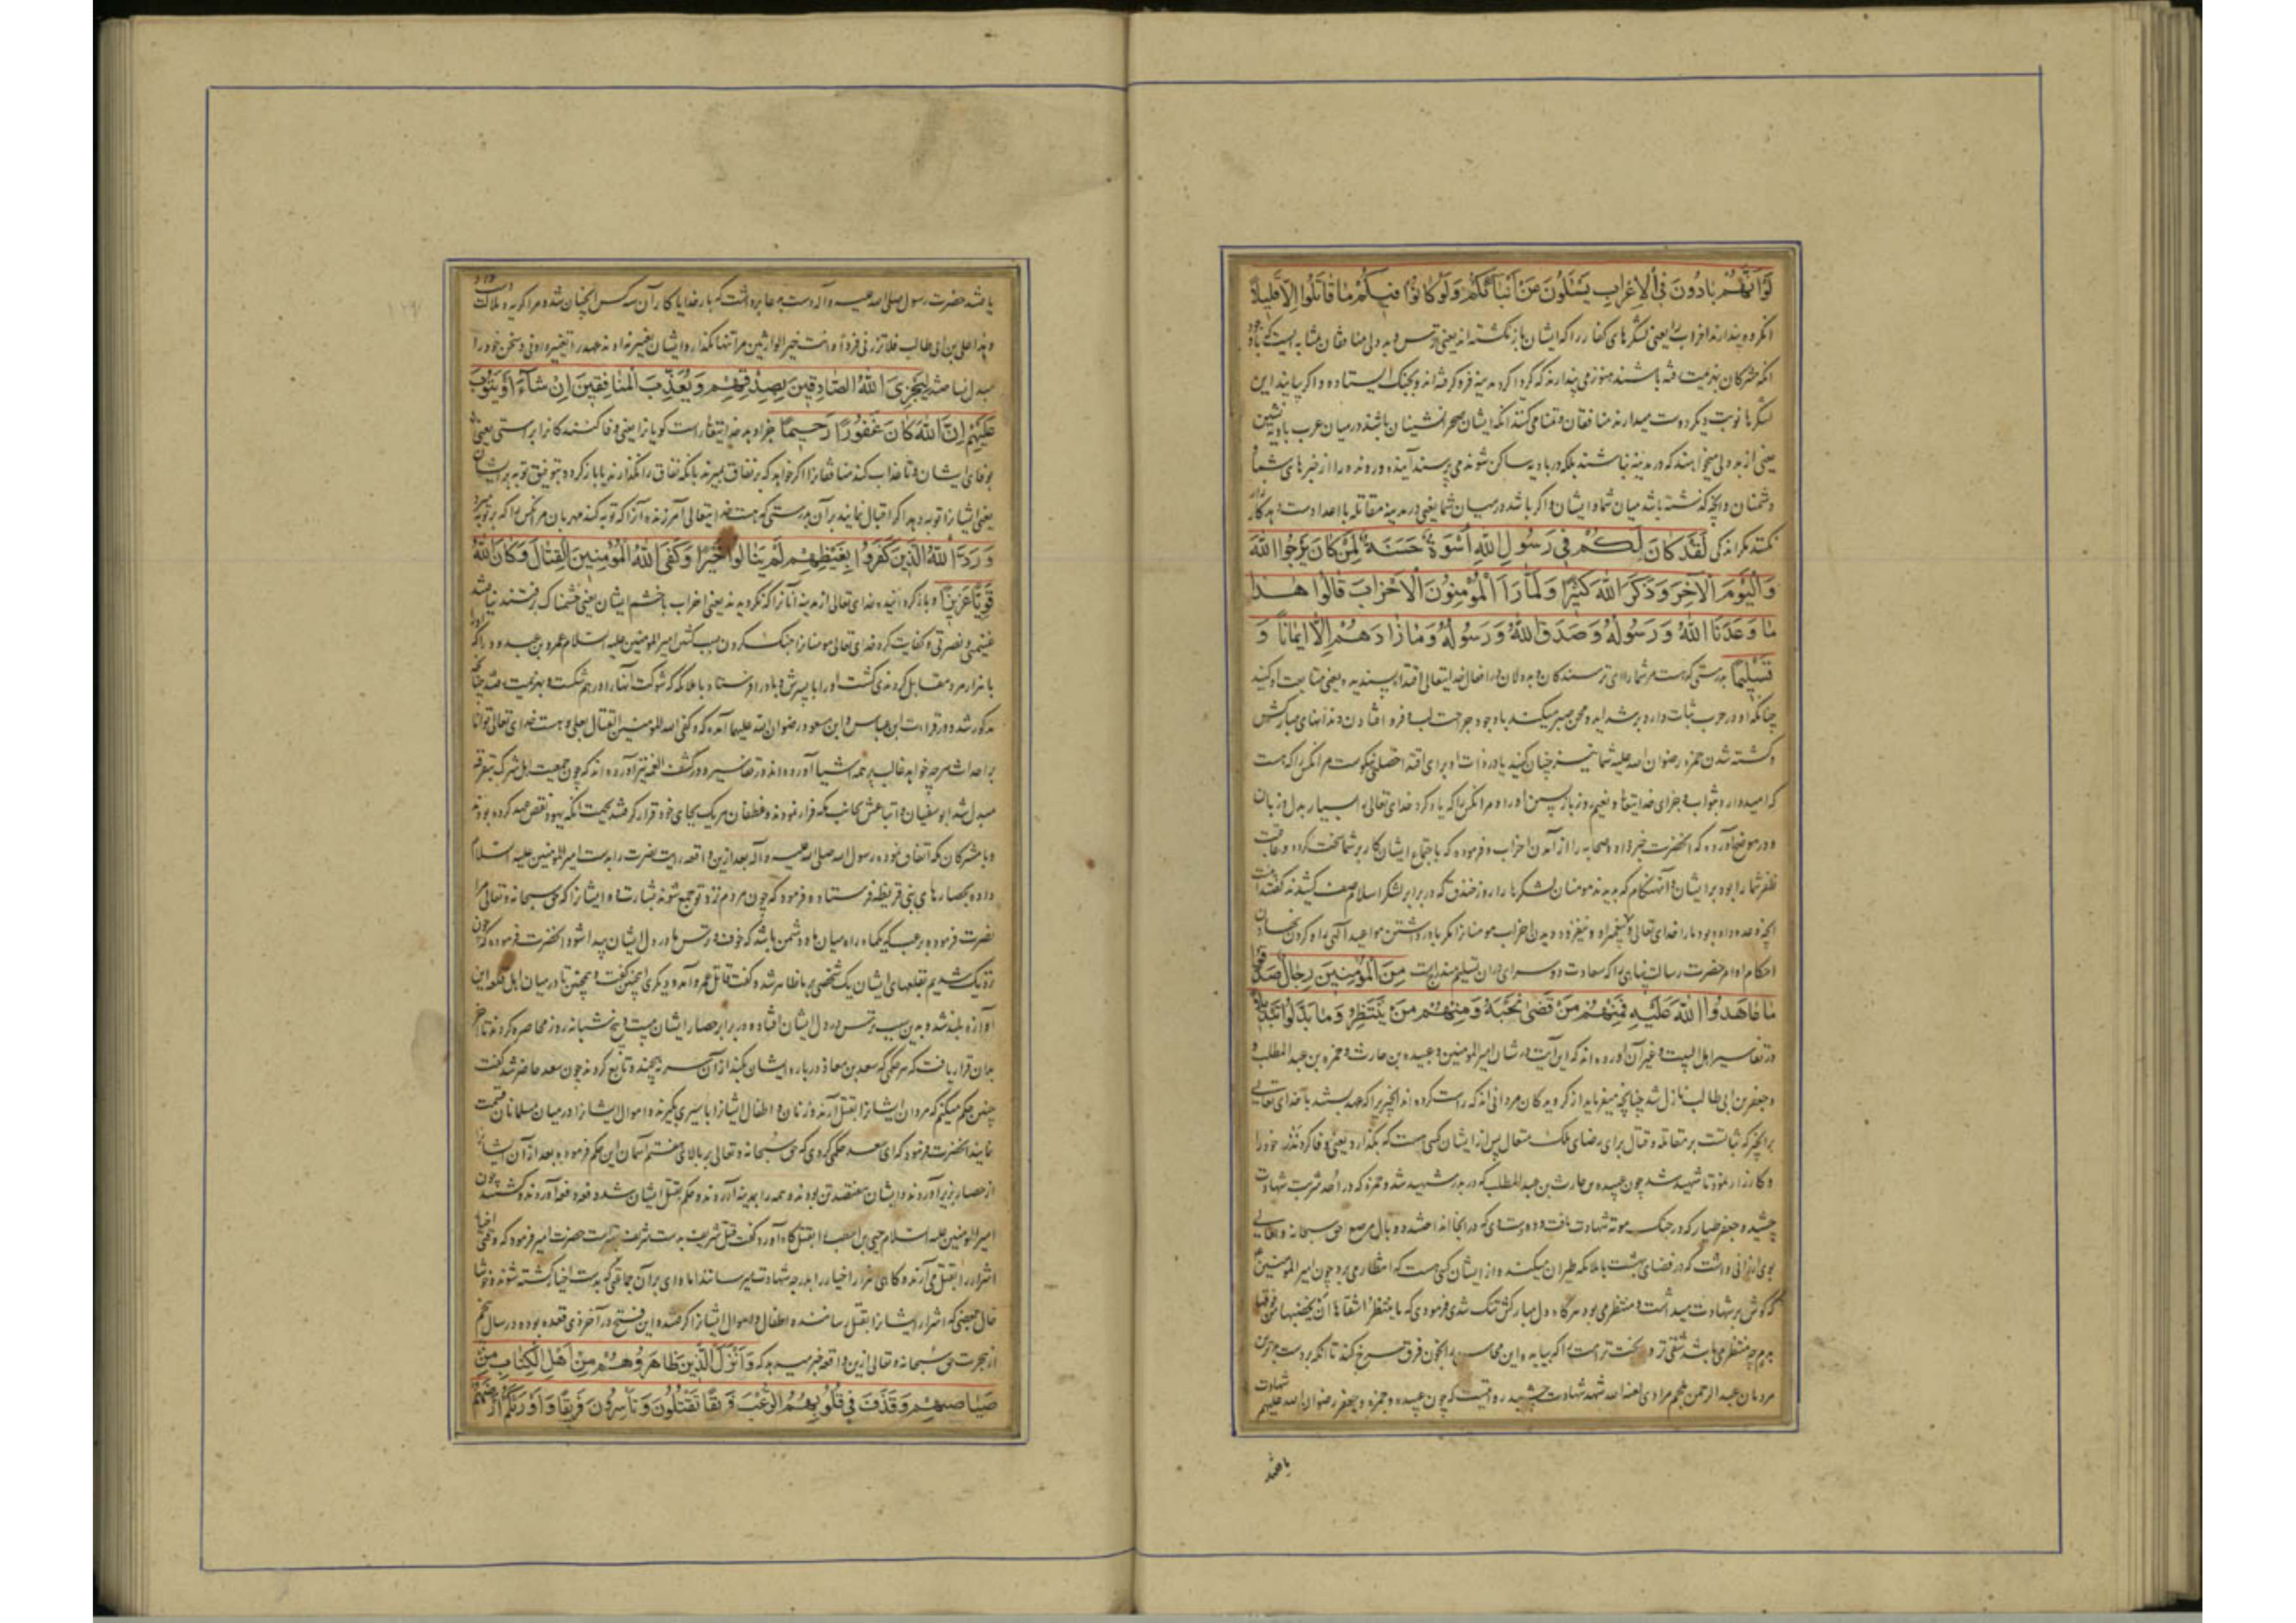 لَوْ أَنَّهُمْ بَادُونَ فِي الْأَعْرَابِ يَسْئَلُونَ عَنْ أَنْبَائِكُمْ وَلَوْ كَانُوا فِيكُمْ مَا قَاتَلُوا إِلَّا قَلِيلًا
انکروه پندارند احزاب را یعنی لشکرهای کفار را که ایشان باز نکشته اند یعنی از ترس و بد دلی منافقان بمثابه ایست که باوجود
انکه مشرکان بهزیمت رفته باشند هنوز می پندارند که کرداکرد مدینه فرو کرفته اند و بجنک ایستاده و اکر بیایند این
لشکرها نوبت دیکر دوست میدارند منافقان و تمنا می کنند انکه ایشان صحرانشینان باشند در میان عرب بادیه نشین
یعنی از بد دلی میخواهند که در مدینه نباشند بلکه در بادیه ساکن شوند می پرسند آینده و رونده را از خبرهای شما با
دشمنان و انچه کذشته باشد میان شما و ایشان و اکر باشد در میان شما یعنی در مدینه مقاتله با اعدا دست بهٔ کار
نکنند مکر اندکی لَقَدْ كَانَ لَكُمْ فِي رَسُولِ اللَّهِ أُسْوَةٌ حَسَنَةٌ لِمَنْ كَانَ يَرْجُوا اللَّهَ
وَالْيَوْمَ الْآخِرَ وَذَكَرَ اللَّهَ كَثِيرًا وَلَمَّا رَأَ الْمُؤْمِنُونَ الْأَحْزَابَ قَالُوا هٰذَا
مَا وَعَدَنَا اللَّهُ وَرَسُولُهُ وَصَدَقَ اللَّهُ وَرَسُولُهُ وَمَا زَادَهُمْ إِلَّا إِيمَانًا وَ
تَسْلِيمًا بدرستی که هست مر شما را ای ترسندکان و بددلان در افعال خدایتعالی اقتدا پسندیده یعنی متابعت او کنید
چنانکه او در حرب ثبات دارد و بر شداید و محن صبر میکند باوجود جراحت لب و فرو افتادن دندانهای مبارکش
و کشته شدن حمزه رضوان الله علیه شما نیز چنان کنید یا در ذات او برای اقتدا خصلتی نیکوست مر انکس را که هست
که امیدوارد بثواب و جزای خدایتعالی و نعیم روز بازپسین را و مر انکس را که یاد کرد خدای تعالی را بسیار بدل و زبان
و در موضح آورده که انحضرت خبر داد صحابه را از آمدن احزاب و فرموده که باجتماع ایشان کار بر شما سخت کردد و عاقبت
ظفر شما را بود بر ایشان و آنهنکام که بدیدند مومنان لشکرها را روز خندق که در برابر لشکر اسلام صف کشیدند کفتند این است
انچه وعده داده بود ما را خدای تعالی و پیغمبر او و نیفزود دیدن احزاب مومنانرا مکر باور داشتن مواعید الهی را و کردن نهادن
احکام اوامر حضرت رسالت پناهی را که سعادت دو سرای دران تسلیم مندرجست مِنَ الْمُؤْمِنِينَ رِجَالٌ صَدَقُوا
مَا عَاهَدُوا اللَّهَ عَلَيْهِ فَمِنْهُمْ مَنْ قَضَى نَحْبَهُ وَمِنْهُمْ مَنْ يَنْتَظِرُ وَمَا بَدَّلُوا تَبْدِيلًا
در تفاسیر اهل البیت و غیر آن آورده اند که این آیت در شان امیر المومنین و عبیده بن حارث و حمزه بن عبد المطلب و
و جعفر بن ابی طالب نازل شد چنانچه میفرماید از کرویدکان مردانی اند که راست کرده اند انچیز را که عهد بستند با خدای تعالی
بر انچیز که ثباتست بر مقاتله و قتال برای رضای ملک متعال پس از ایشان کسی هست که بکذارد یعنی وفا کرد نذر خود را
و کارزار نمود تا شهید شد چون عبیده بن حارث بن عبد المطلب که در بدر شهید شد و حمزه که در احد شربت شهادت
چشیده و جعفر طیار که در جنک موته شهادت یافت و دو دستهای که در انجا انداختند دو بال مرصع حق سبحانه و تعالی
بوی ارزانی داشت که در فضای بهشت با ملائکه طیران میکند و از ایشان کسی هست که انتظار می برد چون امیر المومنین
که کوش بر شهادت میداشت و منتظر می بود هرکاه دل مبارکش تنک شدی فرمودی که ما ینتظر اشقاها ان یخضبها من فوقها
مردمان عبد الرحمن ملجم مرادی لعنه الله شهد شهادت چشید روایتست که چون عبیده و حمزه و جعفر رضوان الله علیهم
باشند
باشند حضرت رسول صلی الله علیه و آله دست بدعا برداشت که بار خدایا کار آن سه کس انچنان شد مرا کریه و ملالت
و هذا علی بن ابی طالب فلا تذرنی فردا و انت خیر الوارثین مرا تنها مکذار و ایشان تغییر ندادند عهد را تغییر دادنی و سخن خود را
مبدل نساختند لِيَجْزِيَ اللَّهُ الصَّادِقِينَ بِصِدْقِهِمْ وَيُعَذِّبَ الْمُنَافِقِينَ إِنْ شَاءَ أَوْ يَتُوبَ
عَلَيْهِمْ إِنَّ اللَّهَ كَانَ غَفُورًا رَحِيمًا تا جزا دهد خدایتعالی راست کویانرا یعنی وفا کنندکانرا براستی یعنی
بوفای ایشان و تا عذاب کند منافقانرا اکر خواهد که بر نفاق بمیرند یا انکه نفاق را نکذارند یا باز کردد بتوفیق توبه بر ایشان
یعنی ایشانرا توبه دهد اکر اقبال نمایند بر آن بدرستی که هست خدایتعالی آمرزنده آنرا که توبه کند مهربان مر انکس را که بر توبه میرد
وَرَدَّ اللَّهُ الَّذِينَ كَفَرُوا بِغَيْظِهِمْ لَمْ يَنَالُوا خَيْرًا وَكَفَى اللَّهُ الْمُؤْمِنِينَ الْقِتَالَ وَكَانَ اللَّهُ
قَوِيًّا عَزِيزًا و باز کردانیده خدای تعالی از مدینه آنانرا که نکرویدند یعنی احزاب با خشم ایشان یعنی خشمناک برفتند نیافتند
غنیمتی و نصرتی و کفایت کرد خدای تعالی مومنانرا جنک کردن بسبب کشتن امیر المومنین علیه السلام عمرو بن عبدود را که
با هزار مرد مقابل کردندی کشت او را با پسرش و باد را فرستاد با ملائکه که شوکت آنها را درهم شکست و بهزیمت رفتند چنانچه
مذکور شد و در قراءت ابن عباس و ابن مسعود رضوان الله علیهما آمده که و کفی الله المومنین القتال بعلی و هست خدای تعالی توانا
بر احداث هر چه خواهد غالب بر همه اشیا آورده اند در تفاسیر و در کشف الغمه نیز آورده اند که چون جمعیت اهل شرک بتفرقه
مبدل شد ابو سفیان و اتباعش بجانب مکه فرار نمودند و غطفان هر یک بجای خود قرار کرفتند بجهت انکه یهود نقض عهد کرده بودند
و با مشرکان مکه اتفاق نموده رسول الله صلی الله علیه و آله بعد از این واقعه رایت نصرت را بدست امیر المومنین علیه السلام
داده بحصارهای بنی قریظه فرستاد و فرمود که چون مردم نزد تو جمع شوند بشارت ده ایشانرا که حق سبحانه و تعالی مرا
نصرت فرموده برعب که یکماه راه میان ما و دشمن باشد که خوف و ترس ما در دل ایشان پیدا شود انحضرت فرموده که چون
نزدیک شدیم بقلعهای ایشان یک شخصی بر ما ظاهر شد و کفت قاتل عمرو آمد و دیکری همچنین کفت و همچنین تا در میان اهل قلعه این
آوازه بلند شد و بدین سبب ترس در دل ایشان افتاده در برابر حصار ایشان بیست و پنج شبانه روز محاصره کردند تا آخر
بدان قرار یافت که هر حکمی که سعد بن معاذ درباره ایشان بکند از آن سر نپیچند و تابع کردند چون سعد حاضر شد کفت
چنین حکم میکنم که مردان ایشانرا بقتل آرند و زنان و اطفال ایشانرا باسیری بکیرند و اموال ایشانرا در میان مسلمانان قسمت
نمایند انحضرت فرمود که ای سعد حکمی کردی که حق سبحانه و تعالی بر بالای هفتم آسمان این حکم فرموده بعد از آن ایشانرا
از حصار بزیر آوردند و ایشان هفتصد تن بودند و همه را بمدینه آوردند و حکم بقتل ایشان شد دفعه دفعه آوردند و کشتند چون
امیر المومنین علیه السلام حیی بن اخطب را بقتلکاه آورد کفت قتل شریف بدست شریف حضرت امیر فرمود که وقتی اخیار
اشرار را بقتل می آرند و کاهی اشرار اخیار را بدرجه شهادت میرسانند اما وای بر آن جماعتی که بدست اخیار کشته شوند و خوشا
حال بعضی که اشرار ایشانرا بقتل رسانند و اطفال و اموال ایشانرا کرفتند و این فتح در آخر ذی قعده بوده در سال پنجم
از هجرت حق سبحانه و تعالی ازین واقعه خبر میدهد که وَأَنْزَلَ الَّذِينَ ظَاهَرُوهُمْ مِنْ أَهْلِ الْكِتَابِ مِنْ
صَيَاصِيهِمْ وَقَذَفَ فِي قُلُوبِهِمُ الرُّعْبَ فَرِيقًا تَقْتُلُونَ وَتَأْسِرُونَ فَرِيقًا وَأَوْرَثَكُمْ أَرْضَهُمْ